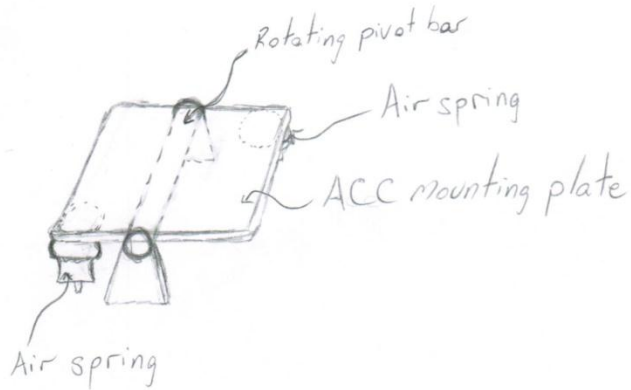 Rotating pivot bar
Air spring
ACC mounting plate
Air spring